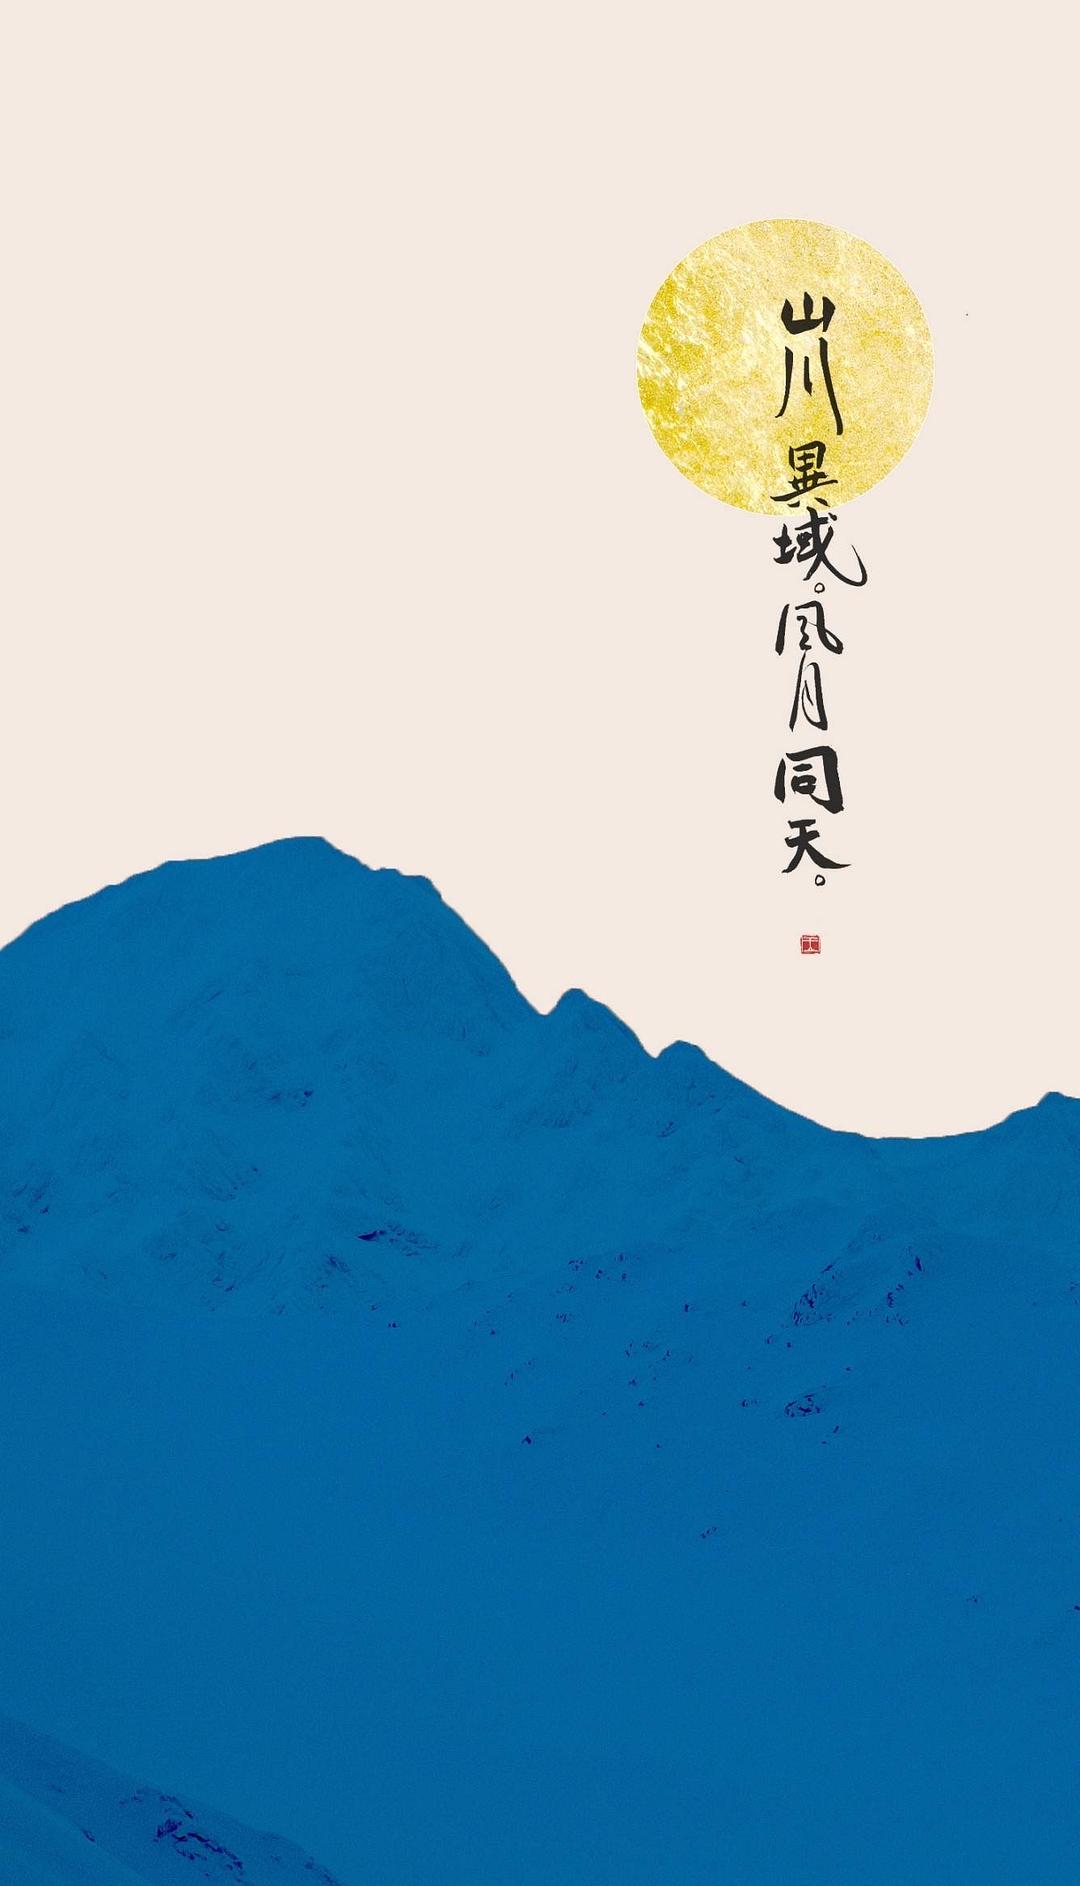 山川異域。风月同天。